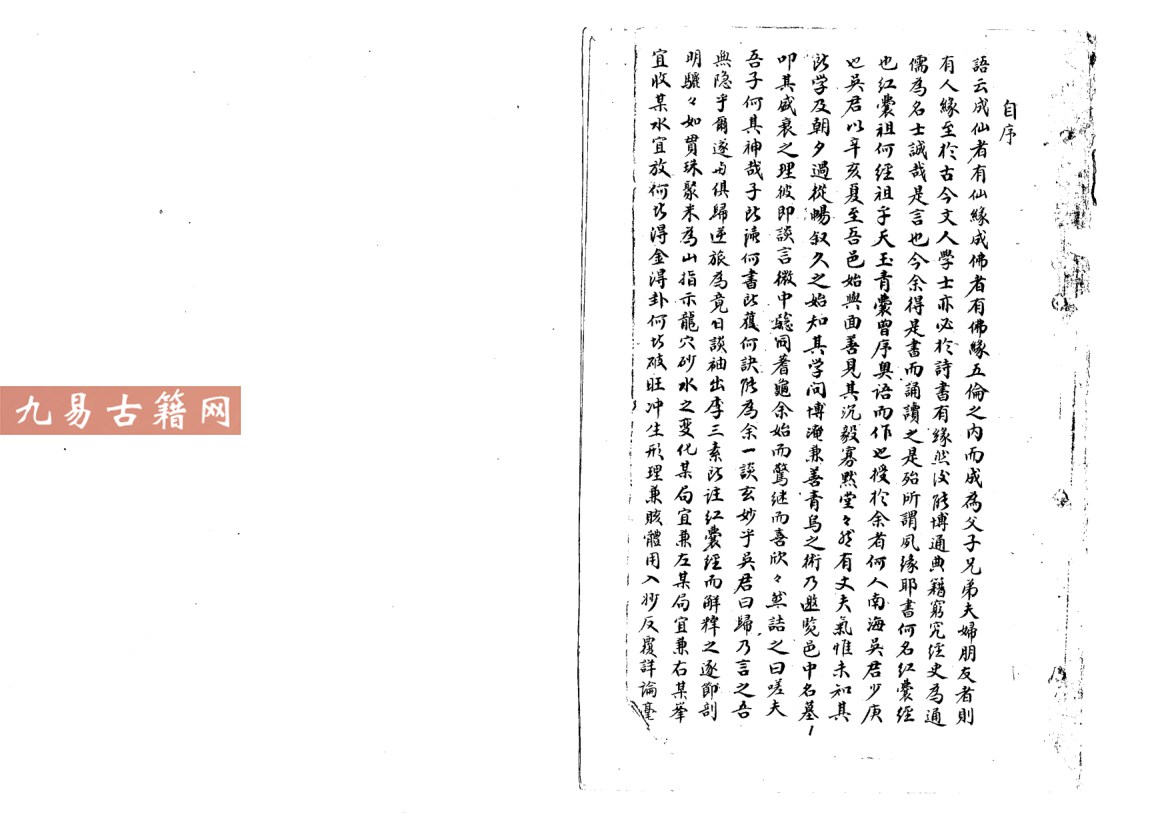 自序
語云成仙者有仙緣成佛者有佛緣五倫之內而成為父子兄弟夫婦朋友者則
有人緣至於古今文人學士亦必於詩書有緣然後能博通典籍窮究經史為通
儒為名士誠哉是言也今余得是書而誦讀之是殆所謂夙緣耶書何名紅囊經
也紅囊祖何經祖乎天玉青囊曾序奧语而作也授於余者何人南海吳君少庚
也吳君以辛亥夏至吾邑始與面善見其沉毅寡默堂々然有丈夫氣惟未知其
所学及朝夕過從暢叙久之始知其学问博淹兼善青烏之術乃邀覧邑中名墓
叩其盛衰之理彼即談言微中驗同蓍龜余始而驚继而喜欣々然詰之曰嗟夫
吾子何其神哉子所讀何書所獲何訣能為余一談玄妙乎吳君曰歸乃言之吾
無隐乎爾遂与俱歸逆旅為竟日談袖出李三素所注红囊經而解释之逐節剖
明驪々如貫珠聚米為山指示龍穴砂水之变化某局宜兼左某局宜兼右某峯
宜收某水宜放何以得金得卦何以破旺冲生形理兼賅體用入妙反覆詳論毫
1
九易古籍网